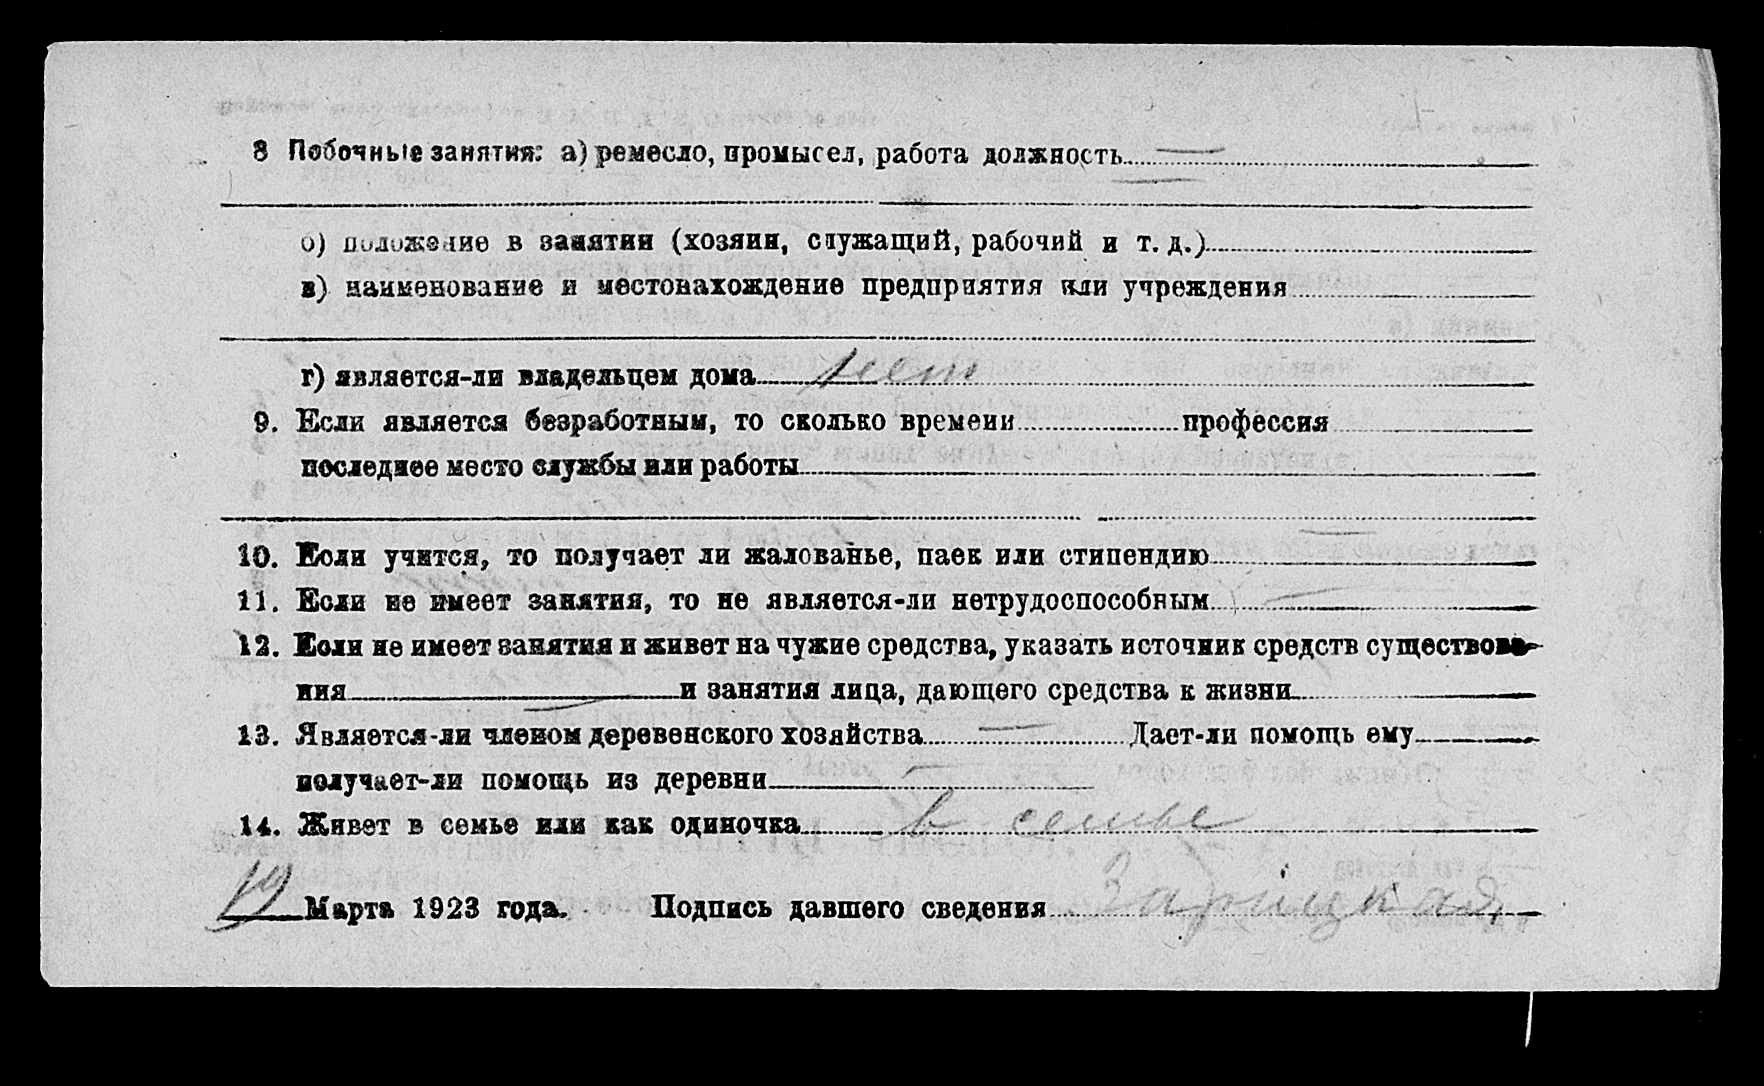 8 Побочные занятия: а) ремесло, промысел, работа должность —
б) положение в занятии (хозяин, служащий, рабочий и т. д.)
в) наименование и местонахождение предприятия или учреждения
г) является-ли владельцем дома нет
9. Если является безработным, то сколько времени профессия
последнее место службы или работы
10. Если учится, то получает ли жалованье, паек или стипендию
11. Если не имеет занятия, то не является-ли нетрудоспособным —
12. Если не имеет занятия и живет на чужие средства, указать источник средств существова-
ния — и занятия лица, дающего средства к жизни
13. Является-ли членом деревенского хозяйства — Дает-ли помощь ему
получает-ли помощь из деревни —
14. Живет в семье или как одиночка в семье
19 Марта 1923 года. Подпись давшего сведения Заріцкая